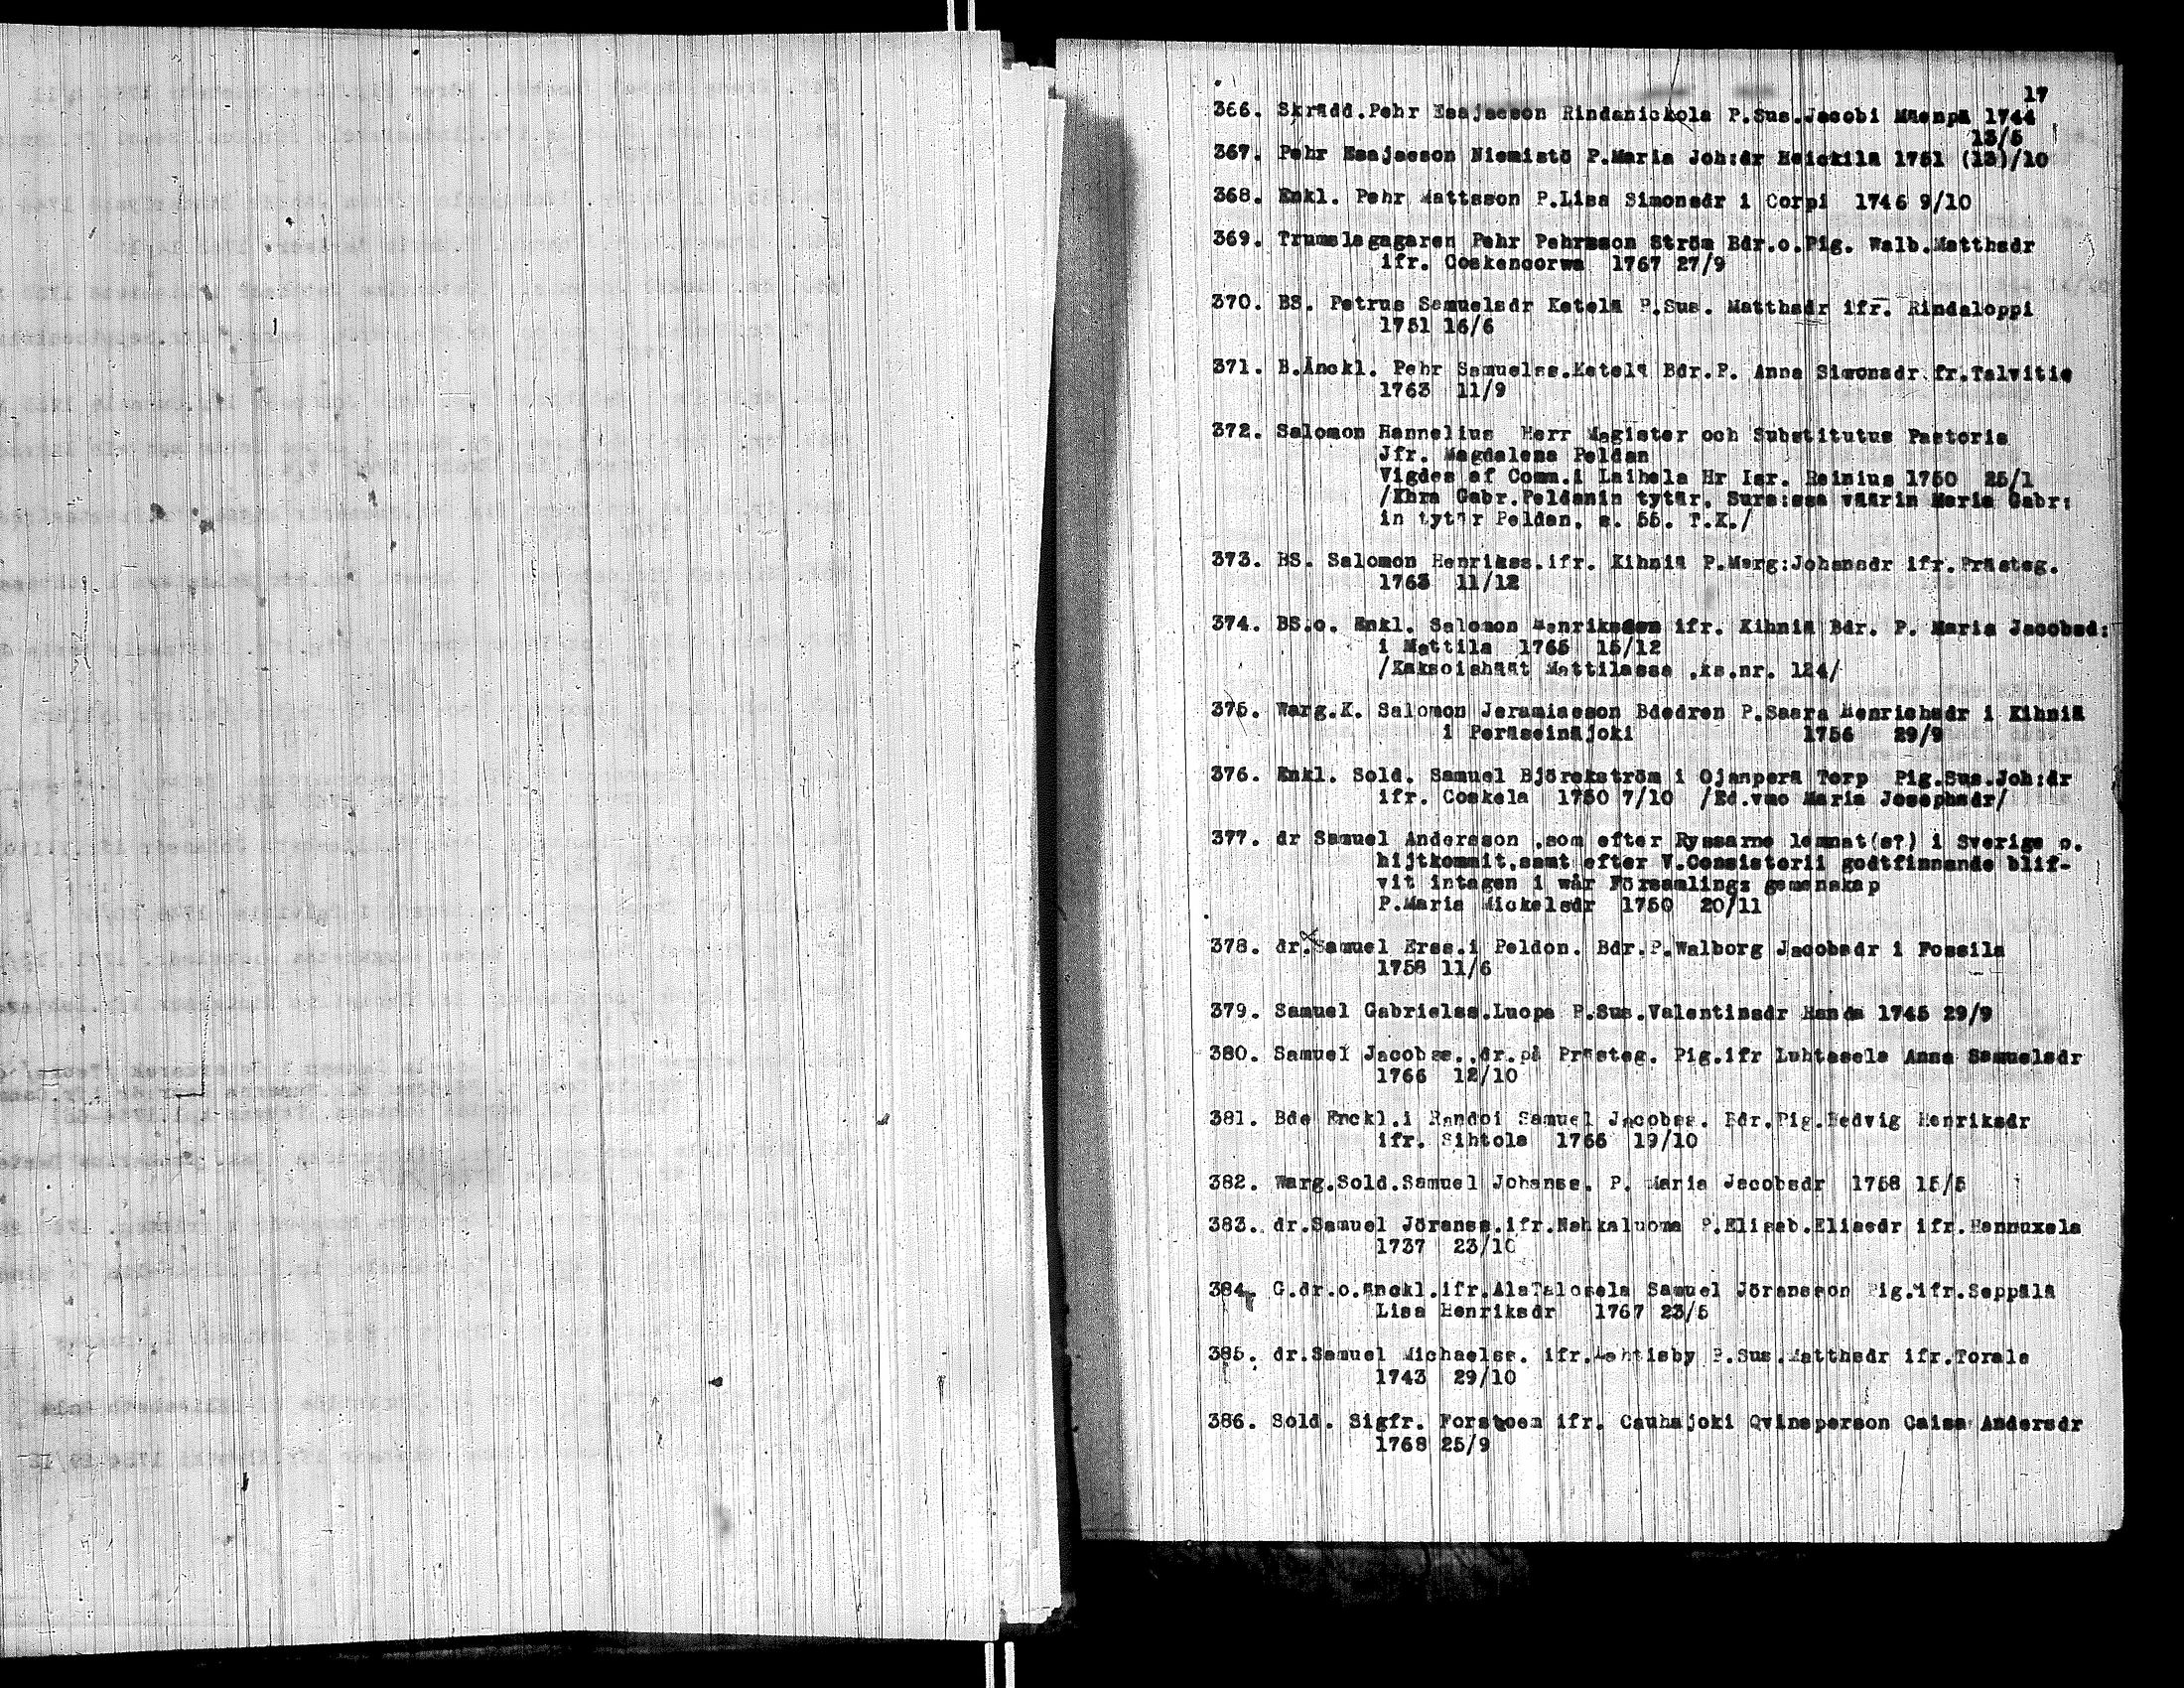 17
366. Skrädd.Pehr Esajasson Rindanickola P.Sus.Jacobi Mäenpä 1744
13/5
367. Pehr Esajasson Niemistö P.Maria Joh:dr Heickilä 1751 (13)/10
368. Enkl. Pehr Mattsson P.Lisa Simonsdr i Corpi 1746 9/10
369. Trumslagagaren Pehr Pehrsson Ström Bdr.o.Pig. Walb.Matthsdr
ifr. Coskencorwa 1767 27/9
370. BS. Petrus Samuelsdr Ketelä P.Sus. Matthsdr ifr. Rindaloppi
1751 16/6
371. B.Änckl. Pehr Samuelss.Ketelä Bdr.P. Anna Simonsdr.fr.Talvitie
1763 11/9
372. Salomon Hannelius Herr Magister och Substitutus Pastoris
Jfr. Magdalena Peldan
Vigdes af Comm.i Laihela Hr Isr. Reinius 1750 25/1
/Khra Gabr.Peldanin tytär. Sura:ssa väärin Maria Gabr:
in tytär Peldan, s. 55. T.K./
373. BS. Salomon Henrikss.ifr. Kihniä P.Marg:Johansdr ifr.Prästeg.
1763 11/12
374. BS.o. Enkl. Salomon Henriksson ifr. Kihniä Bdr. P. Maria Jacobsd:
i Mattila 1765 15/12
/Kaksoishäät Mattilassa ,ks.nr. 124/
375. Warg.K. Salomon Jeramiasson Bdedren P.Saara Henrichsdr i Kihniä
i Peräseinäjoki 1756 29/9
376. Enkl. Sold. Samuel Björckström i Ojanperä Torp Pig.Sus.Joh:dr
ifr. Coskela 1750 7/10 /Ed.vmo Maria Josephsdr/
377. dr Samuel Andersson ,som efter Ryssarne lemnat(s?) i Sverige o.
hijtkommit,samt efter V.Consistorii godtfinnande blif-
vit intagen i wår Församlings gemenskap
P.Maria Mickelsdr 1750 20/11
378. dr.Samuel Erss.i Peldon. Bdr.P.Walborg Jacobsdr i Fossila
1758 11/6
379. Samuel Gabrielss.Luopa P.Sus.Valentinsdr Randa 1745 29/9
380. Samuel Jacobss.,dr.på Prästeg. Pig.ifr Luhtasela Anna Samuelsdr
1766 12/10
381. Bde Enckl.i Randoi Samuel Jacobss. Bdr.Pig.Hedvig Henriksdr
ifr. Sihtola 1766 19/10
382. Warg.Sold.Samuel Johanss. P. Maria Jacobsdr 1758 15/5
383. dr.Samuel Jöranss.ifr.Nahkaluoma P.Elisab.Eliasdr ifr.Hannuxela
1737 23/10
384. G.dr.o.Enckl.ifr.AlaTalosela Samuel Jöransson Pig.ifr.Seppälä
Lisa Henriksdr 1767 23/5
385. dr.Samuel Michaelss. ifr.Lahtisby P.Sus.Matthsdr ifr.Torala
1743 29/10
386. Sold. Sigfr. Forstoen ifr. Cauhajoki Qvinsperson Caisa Andersdr
1768 25/9